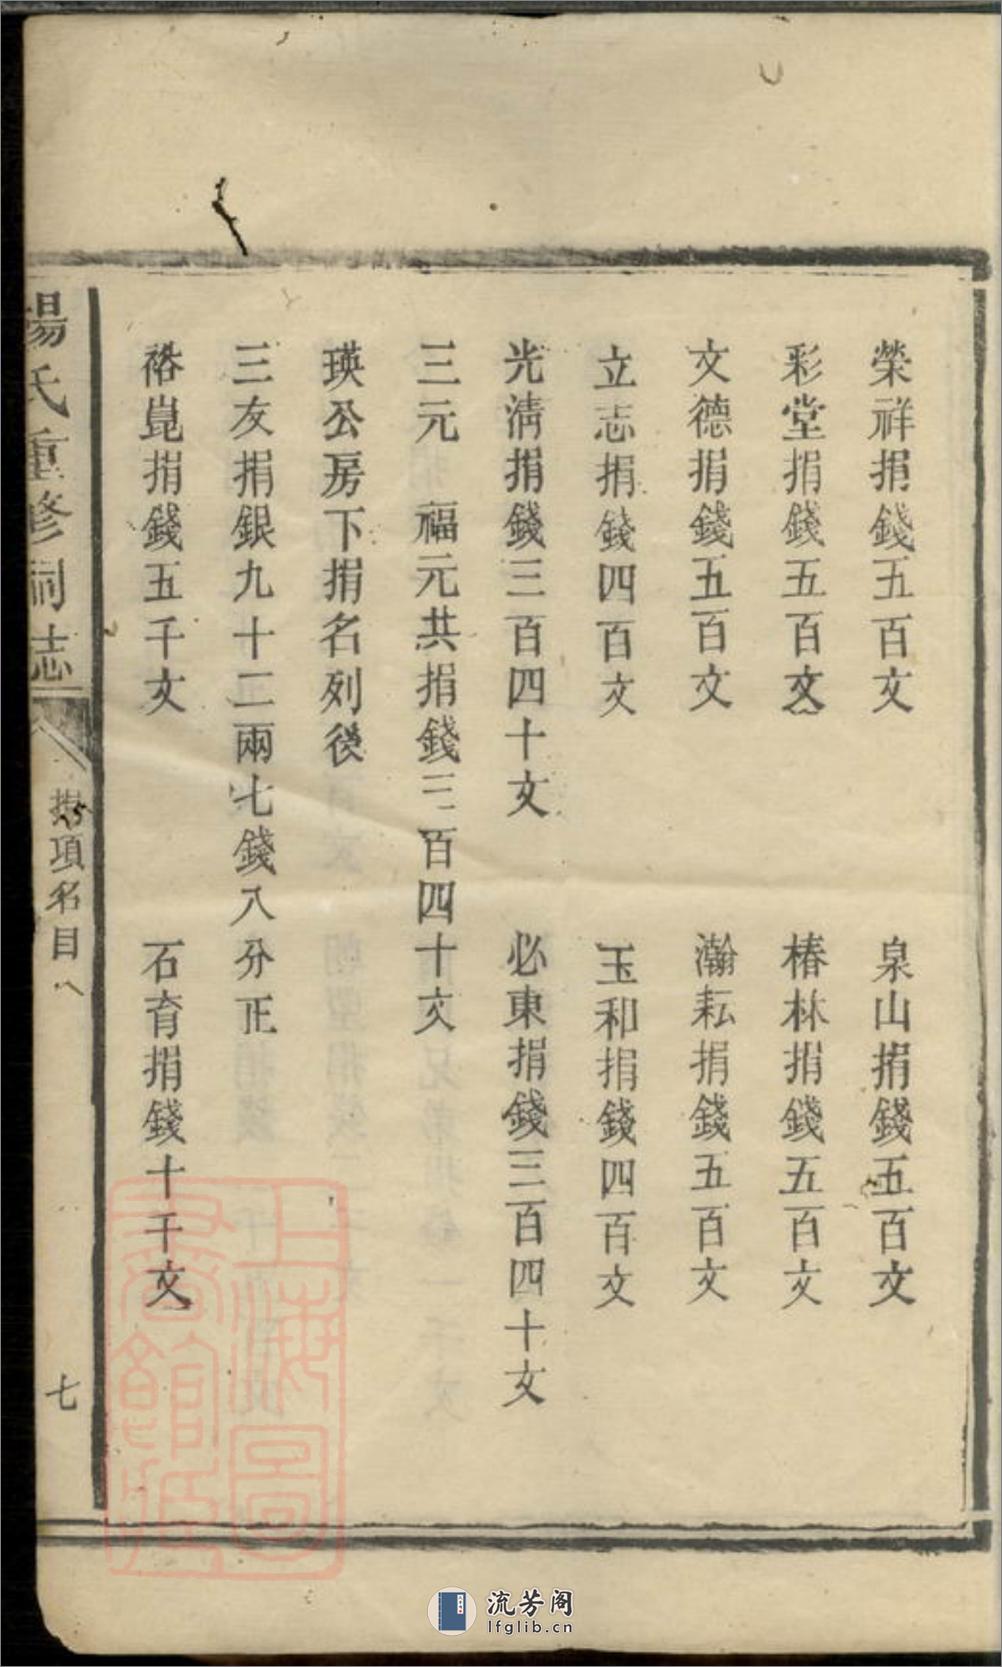 榮祥捐錢五百文　泉山捐錢五百文
彩堂捐錢五百文　椿林捐錢五百文
文德捐錢五百文　瀚耘捐錢五百文
立志捐錢四百文　玉和捐錢四百文
光淸捐錢三百四十文　必東捐錢三百四十文
三元　福元共捐錢三百四十文
瑛公房下捐名列後
三友捐銀九十二兩七錢八分正
裕崑捐錢五千文　石育捐錢十千文
楊氏重修祠志
捐項名目
七
上海圖書館藏
流芳阁
lfglib.cn